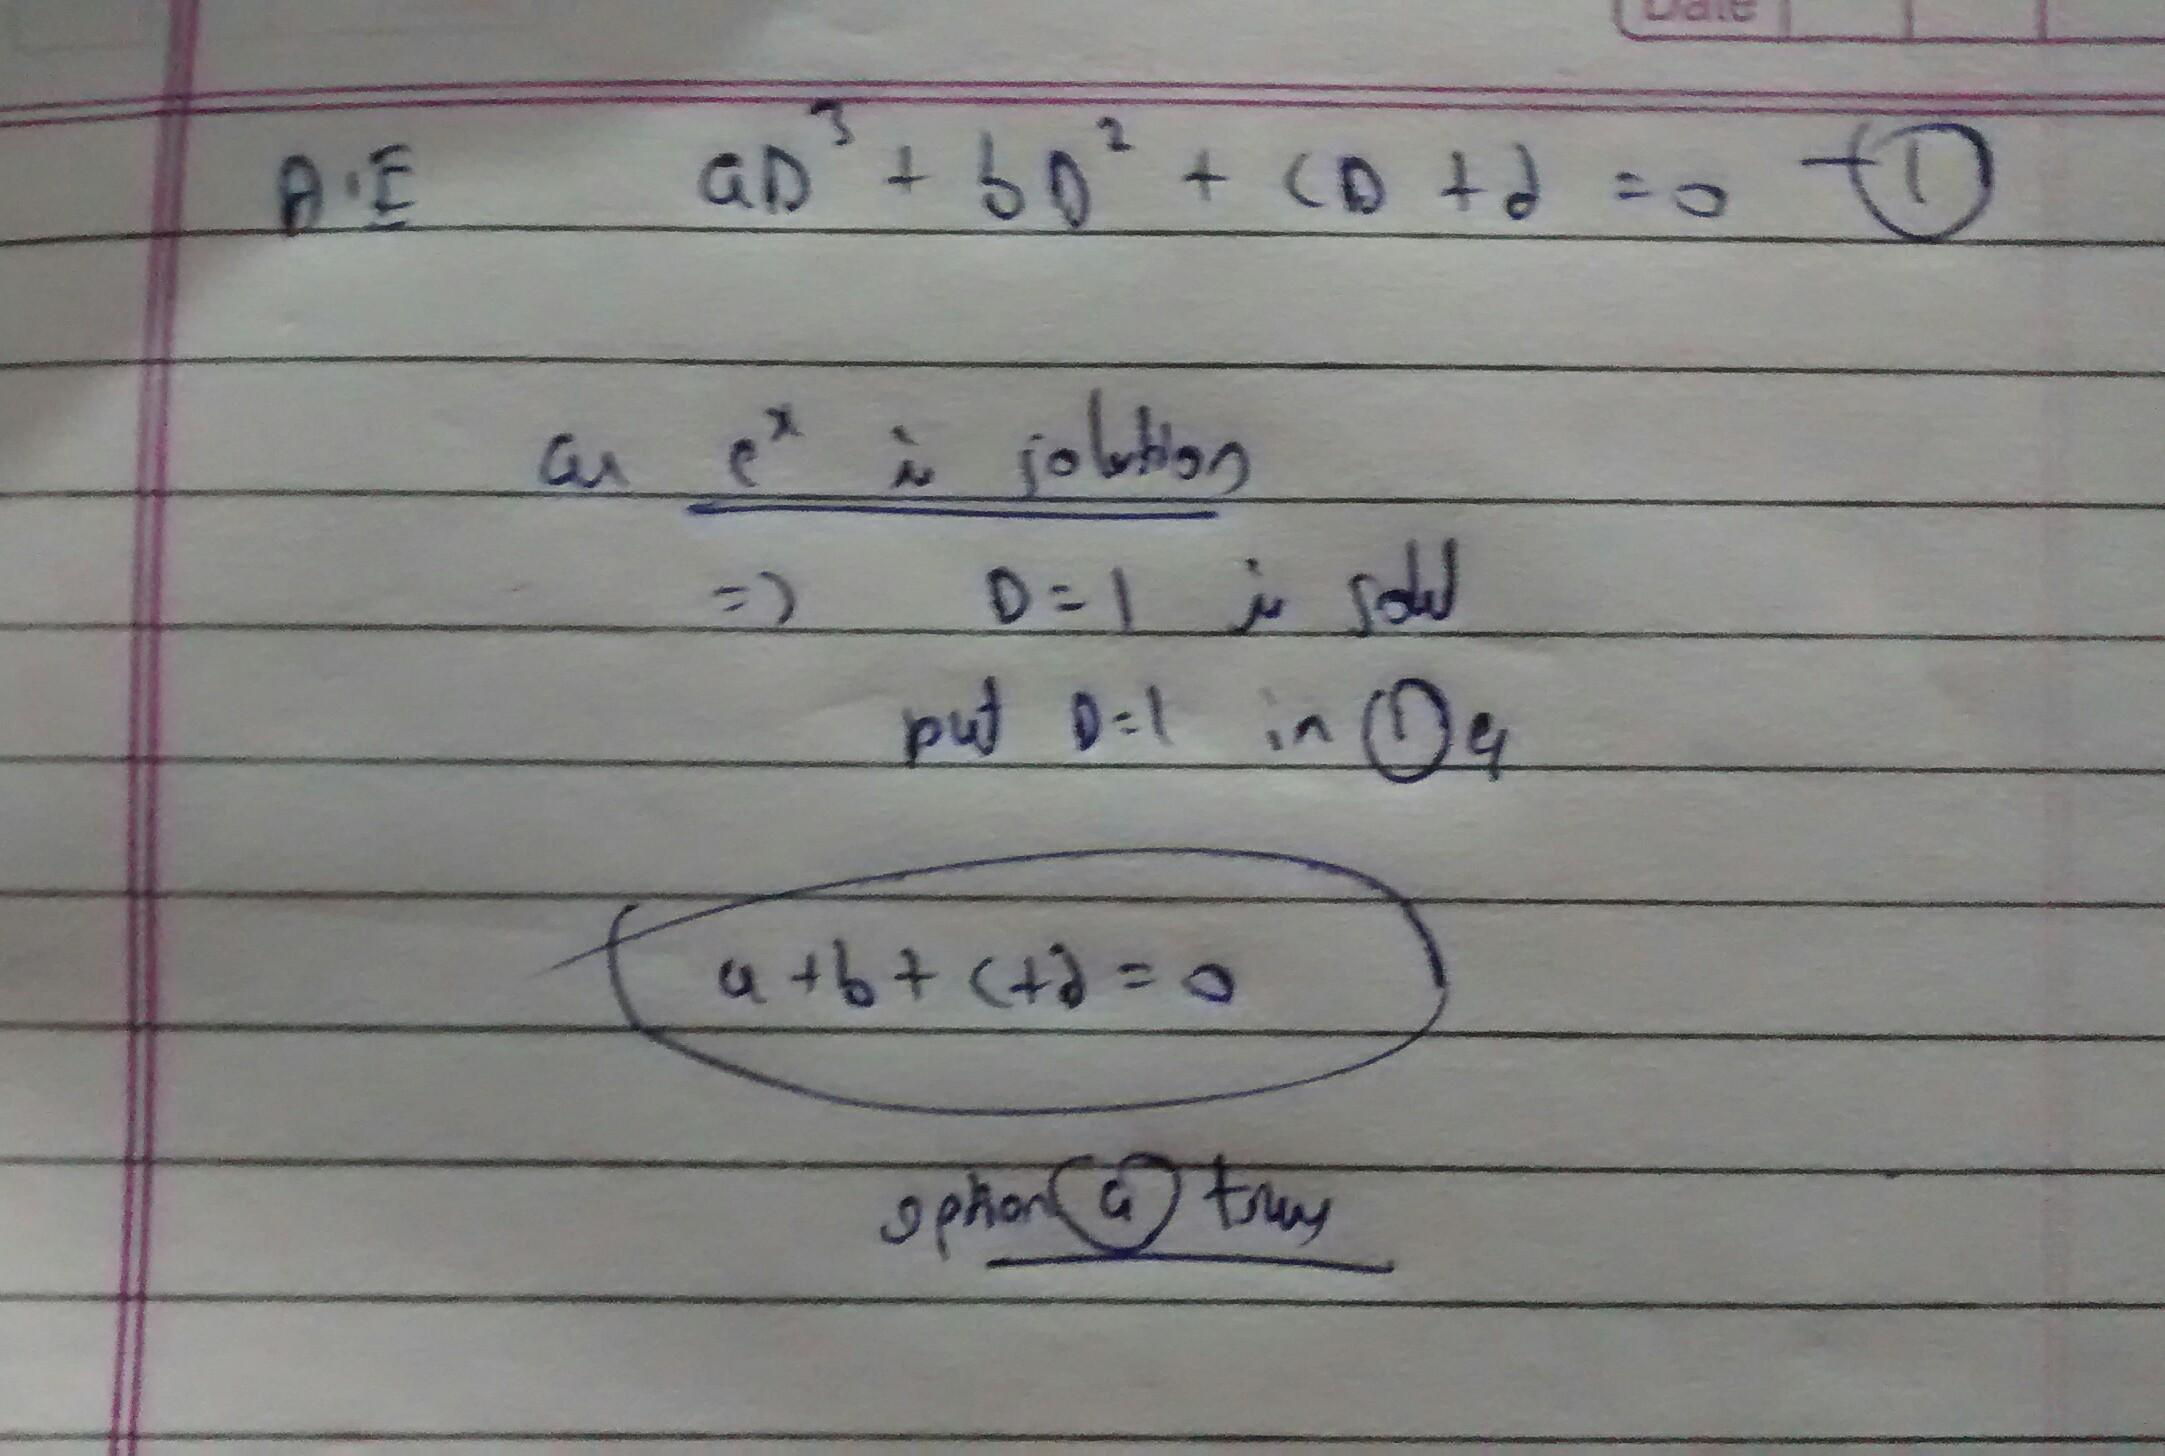 Date
A.E aD³ + bD² + cD + d = 0 -①
as eˣ is solution
=> D=1 is solⁿ
put D=1 in ① eq
a + b + c + d = 0
option ⓐ true